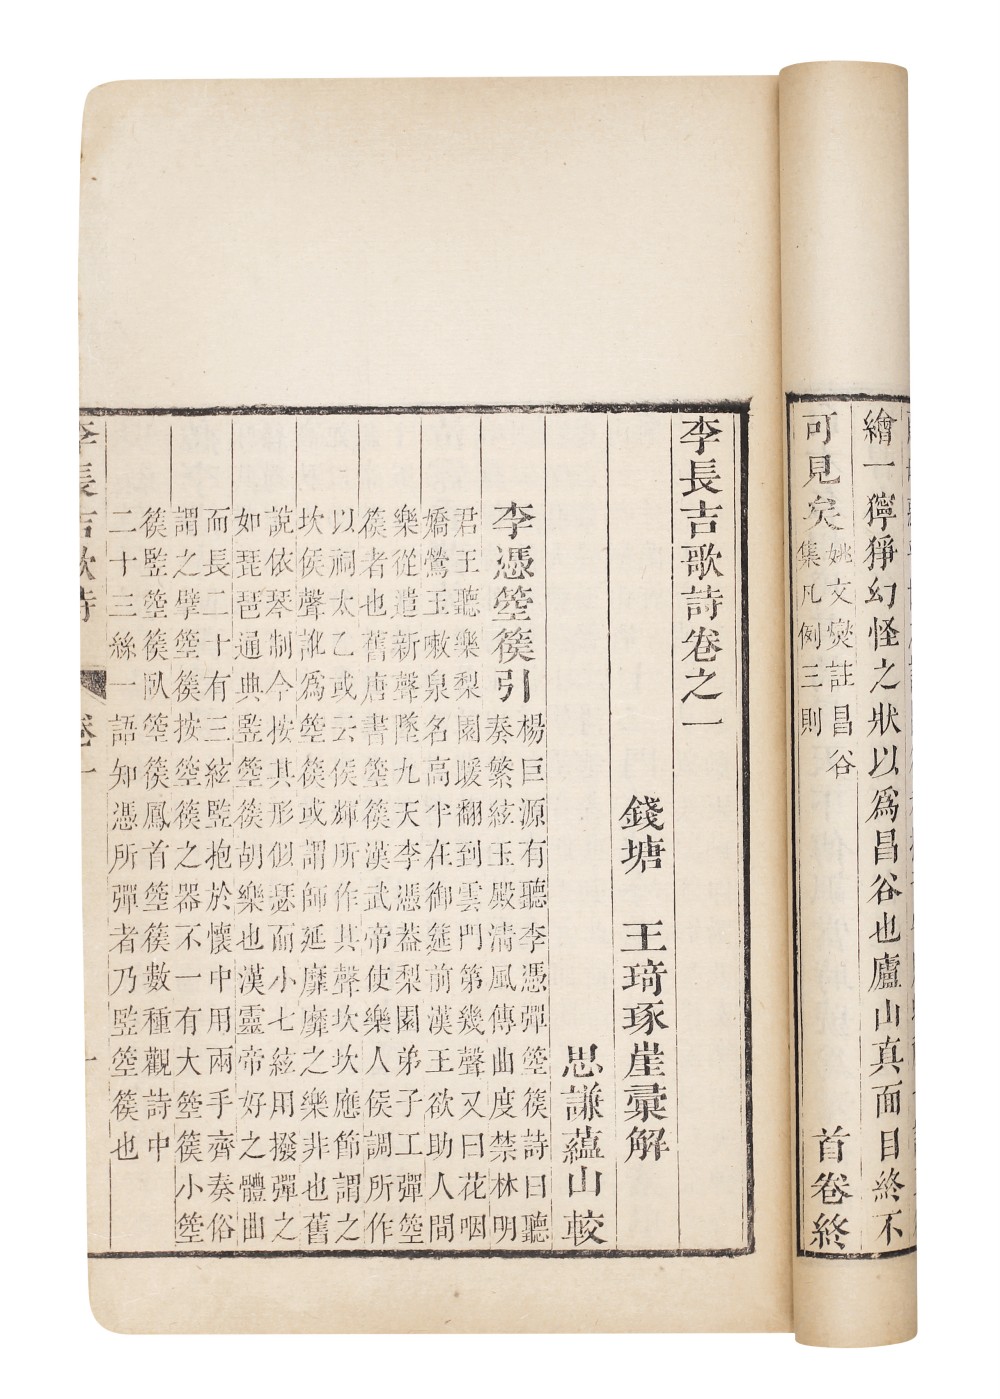 繪一獰猙幻怪之狀以爲昌谷也廬山真面目終不
可見矣
姚文燮註昌谷
集凡例三則
首卷終
李長吉歌詩卷之一
錢塘　王琦琢崖彙解
思謙蘊山較
李憑箜篌引
楊巨源有聽李憑彈箜篌詩曰聽
奏繁絃玉殿清風傳曲度禁林明
君王聽樂梨園暖翻到雲門第幾聲又曰花咽
嬌鶯玉嗽泉名高半在御筵前漢王欲助人間
樂從遣新聲墜九天李憑葢梨園弟子工彈箜
篌者也舊唐書箜篌漢武帝使樂人侯調所作
以祠太乙或云侯輝所作其聲坎坎應節謂之
坎侯聲訛爲箜篌或謂師延靡靡之樂非也舊
說依琴制今按其形似瑟而小七絃用撥彈之
如琵琶通典竪箜篌胡樂也漢靈帝好之體曲
而長二十有三絃竪抱於懷中用兩手齊奏俗
謂之擘箜篌按箜篌之器不一有大箜篌小箜
篌竪箜篌臥箜篌鳳首箜篌數種觀詩中
二十三絲一語知憑所彈者乃竪箜篌也
李長吉歌詩　卷一　一